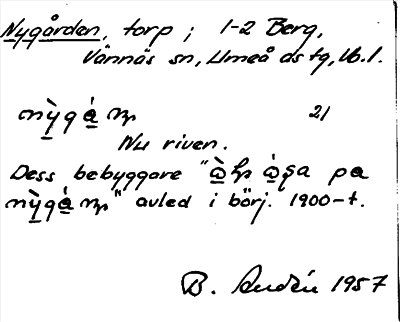 Nygården, torp; 1-2 Berg,
Vännäs sn, Umeå ds tg, Vb. l.
21
Nu riven.
Dess bebyggare "
" avled i börj. 1900-t.
B. 1957